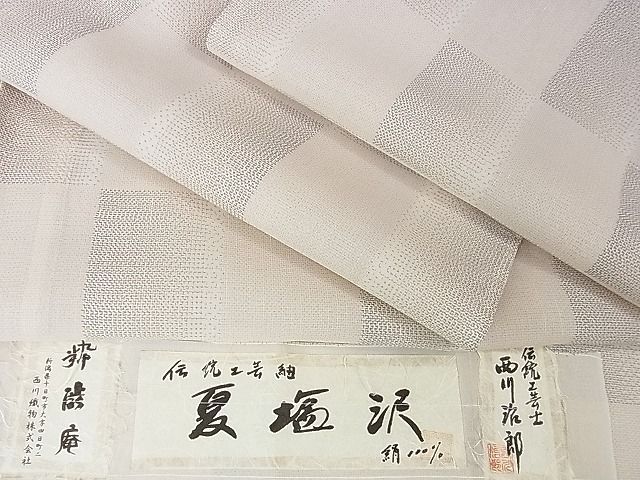 伝統工芸紬
夏塩沢
絹100%
伝統工芸士
西川治郎
新潟県十日町市大字四日町二
西川織物株式会社